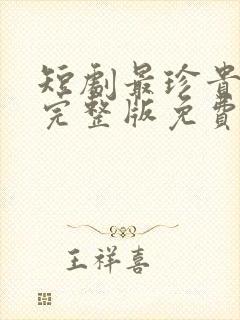 短劇最珍貴
完整版免費
王祥喜